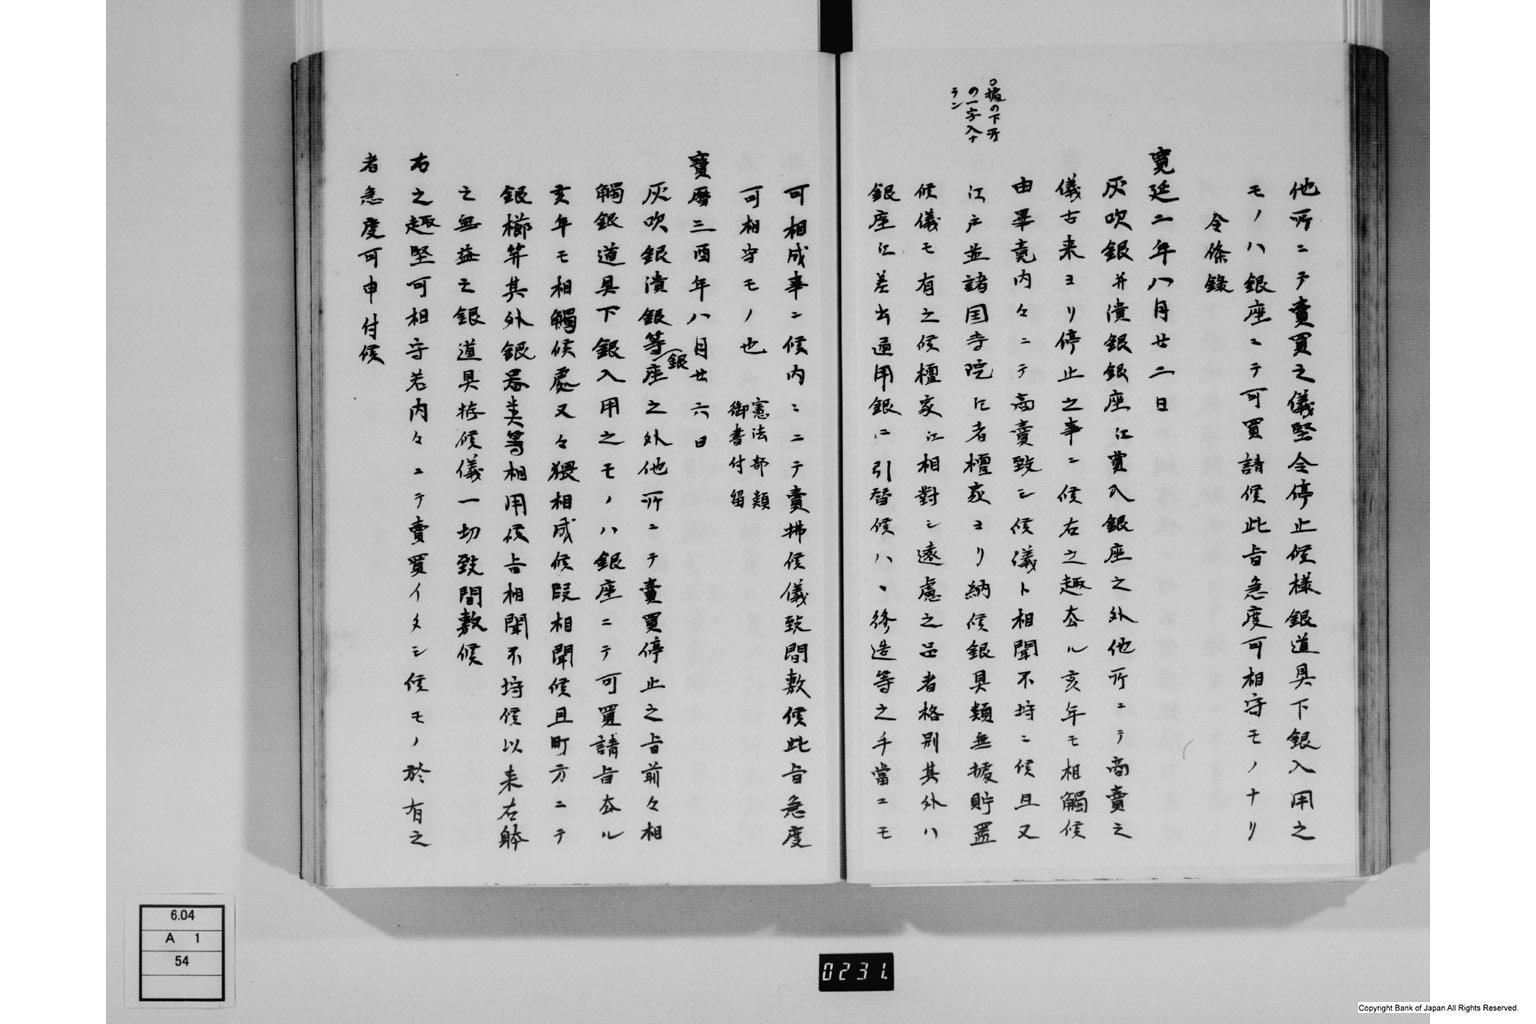 他所ニテ賣買之儀堅令停止候様銀道具下銀入用之
モノハ銀座ニテ可買請候此旨急度可相守モノナリ
令條錄
寛延二年八月廿二日
灰吹銀并潰銀銀座江買入銀座之外他所ニテ商賣之
儀古来ヨリ停止之事ニ候右之趣去ル亥年モ相觸候
由畢竟内々ニテ商賣致シ候儀ト相聞不埒ニ候且又
江戸並諸国寺院江者檀家ヨリ納候銀具類無據貯置
候儀モ有之候檀家江相對シ遠慮之品者格別其外ハ
銀座江差出通用銀ニ引替候ハヽ修造等之手當ニモ
○據の下所
の一字入ナ
ラン
可相成事ニ候内ニニテ賣拂候儀致間敷候此旨急度
可相守モノ也
憲法部類
御書付留
寶暦三酉年八月廿六日
灰吹銀潰銀等(銀座之外他所ニテ賣買停止之旨前々相
觸銀道具下銀入用之モノハ銀座ニテ可買請旨去ル
亥年モ相觸候處又々猥相成候段相聞候且町方ニテ
銀櫛笄其外銀器類等相用候旨相聞不埒候以来右躰
之無益之銀道具拵候儀一切致間敷候
右之趣堅可相守若内々ニテ賣買イタシ候モノ於有之
者急度可申付候
6.04
A 1
54
0231.
Copyright Bank of Japan All Rights Reserved.